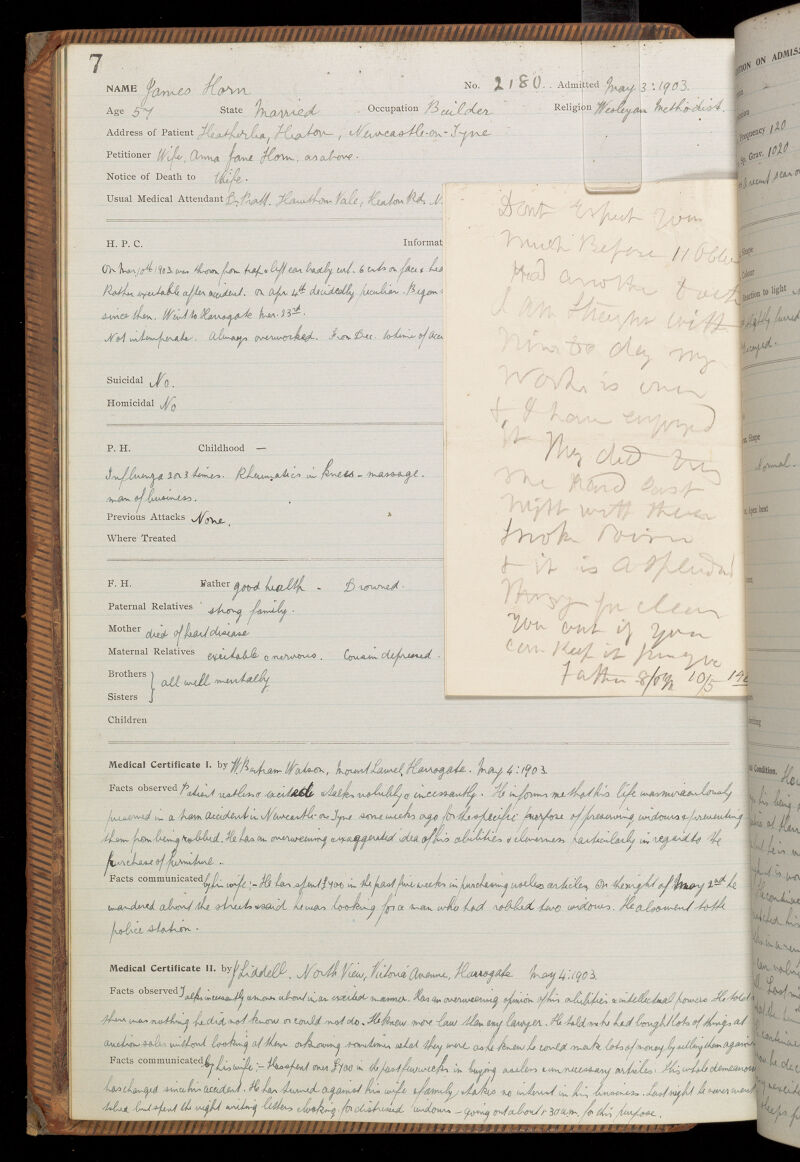 7
NAME James Horn No. 2180. Admitted May 3:1903.
Age 57 State Married Occupation Builder Religion Wesleyan Methodist.
Address of Patient Heaton, Newcastle-on-Tyne
Petitioner Wife, Anna Jane Horn, as above.
Notice of Death to Wife.
Usual Medical Attendant Dr Pratt. Hawthorn Vale, Heaton Rd, N.
H. P. C. Informat
On Mar 10th 1903 was thrown from trap & left ear badly cut. 6 cuts on face & hea
Rather excitable after accident. On Apr 4th decidedly peculiar. Began
since then. Went to Harrogate Mar. 23rd.
Not intemperate. Always overworked. From Dec. to time of acci
Suicidal No.
Homicidal No
P. H. Childhood —
Influenza 2 or 3 times. Rheumatics in knees - massage.
man of business.
Previous Attacks None.
Where Treated
F. H. Father good health - Drowned.
Paternal Relatives strong family.
Mother died of heart disease
Maternal Relatives excitable & nervous. Cousin depressed.
Brothers
Sisters } all well mentally
Children
Dont Expect you
much Before 11 O
Had another
I Am Straight with
Nine to day my
Works is over
& I have enjoyed
it They did try
me Hard Last
night with there
Smok
& it is a Splendid
thing for clean
you out if you
can keep it
Father 10/5 190
Medical Certificate I. by W. Bertram Watson, Mount Laurel, Harrogate. May 4:1903.
Facts observed Patient restless & excitable & talks volubly & incessantly. He informs me that his life was miraculously
preserved in a tram accident in Newcastle-on-Tyne some weeks ago for the specific purpose of preserving widows & preventing
them from being robbed. He has an overweening & exaggerated idea of his abilities & cleverness particularly in regard to the
purchase of furniture.
Facts communicated by his wife:- He has spent £400 in the past five weeks in purchasing useless articles. On the night of May 2nd he
wandered about the streets & said he was looking for a man who had robbed two widows. He also went to the
police station.
Medical Certificate II. by J Liddell, North View, Victoria Avenue, Harrogate May 4:1903.
Facts observed Talks incessantly & moves about in an excited manner. Has an overweening opinion of his abilities & intellectual powers. He told
there was nothing he did not know or could not do. He knew more law than any lawyer. He told me he had bought lots of things at
auction sales without looking at them or knowing sometimes what they were as he knew he could make lots of money by selling them again
Facts communicated by his wife:- Has spent over £400 in the past few weeks in buying useless & unnecessary articles. His whole demeanour
has changed since his accident. He has turned against his wife & family & takes no interest in his business. Last night he never went
to bed but spent the night writing letters & looking for distressed widows - going out about 1.30 a.m. for this purpose.
ON ADMISS
Frequency 120
Sp. Grav. 1020
Shape
Colour
Reaction to light
slightly furred
Shape
Normal.
Apex beat
Condition.